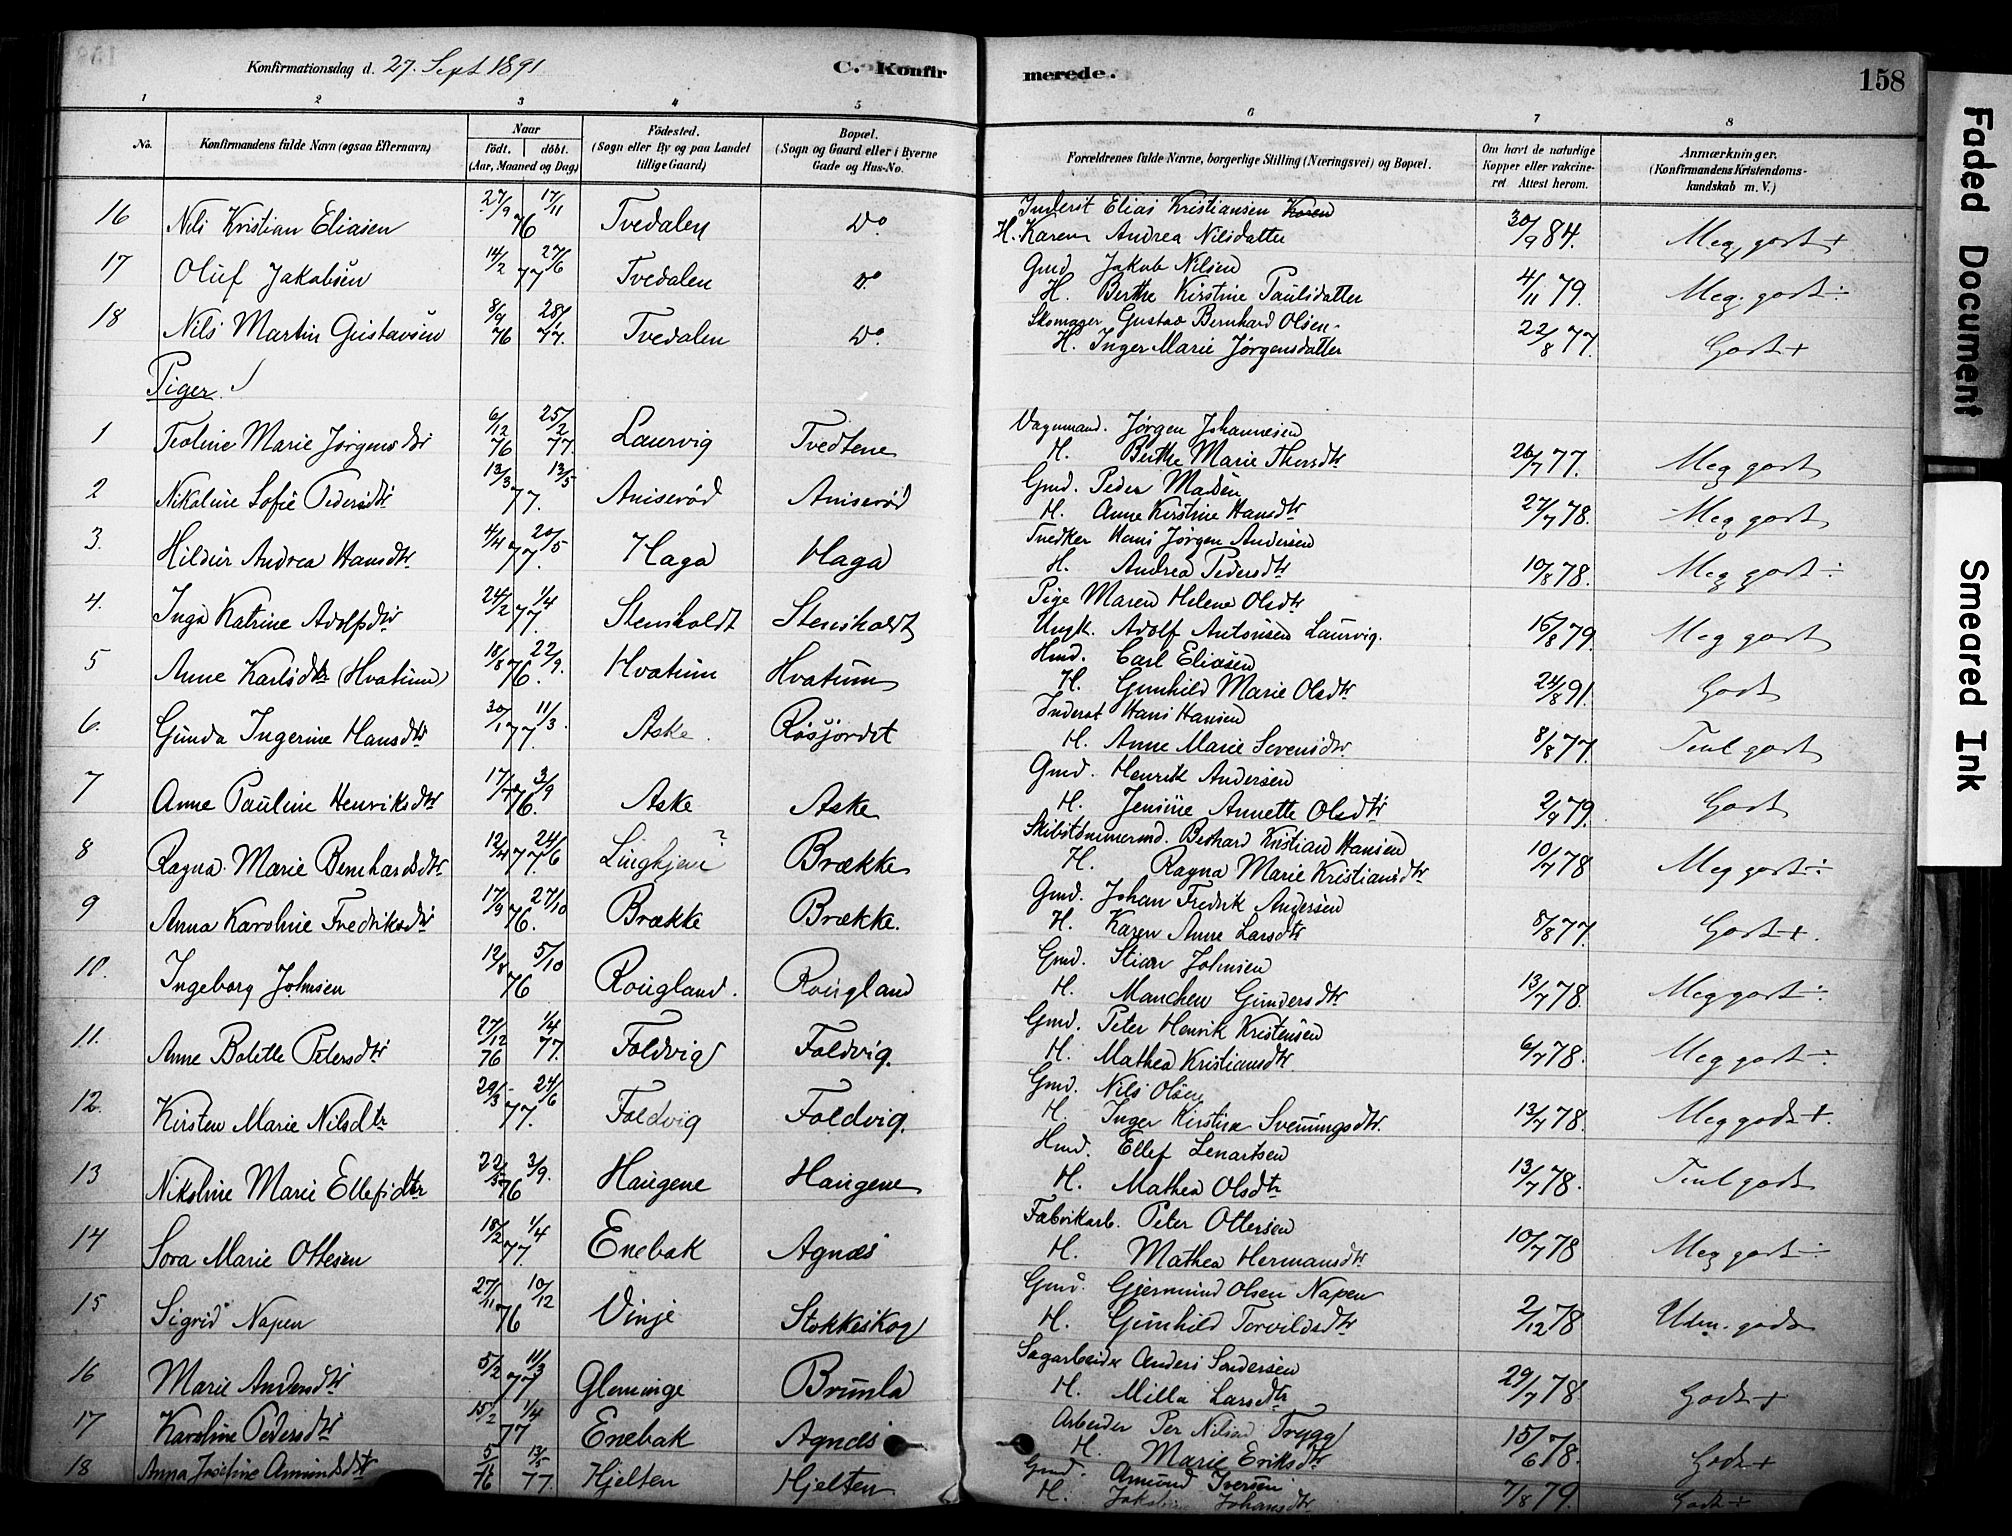 Konfirmationsdag d. 27. Sept 1891 C. Konfirmerede. 158
1 2 3 4 5 6 7 8
No. Konfirmandens fulde Navn (ogsaa Efternavn) Naar födt. döbt. (Aar, Maaned og Dag) Födested. (Sogn eller By og paa Landet tillige Gaard) Bopæl. (Sogn og Gaard eller i Byerne Gade og Hus-No. Forældrenes fulde Navne, borgerlige Stilling (Næringsvei) og Bopæl. Om havt de naturlige Kopper eller vakcineret. Attest herom. Anmærkninger. (Konfirmandens Kristendomskundskab m. V.)
16 Nils Kristian Eliasen 27/9 17/11 76 Tvedalen Do Inderst Elias Kristiansen H. Karen Andrea Nilsdatter 30/9 84. Meg. godt +
17 Oluf Jakobsen 14/2 27/6 77 Tvedalen Do Gmd Jakob Nilsen H. Berthe Kirstine Paulsdatter 4/11 79. Meg. godt ÷
18 Nils Martin Gustavsen 8/9 76 28/1 77. Tvedalen Do. Skomager Gustav Bernhard Olsen. H. Inger Marie Jørgensdatter 22/8 77. Godt +
Piger
1 Teoline Marie Jørgensdtr 6/12 76 25/2 77. Laurvig Tvedtene Vognmand. Jørgen Johannesen H. Berthe Marie Thorsdtr 26/7 77. Meg godt
2 Nikoline Sofie Pedersdtr 13/3 13/5 77. Aniserød Aniserød Gmd. Peder Madsen H. Anne Kirstine Hansdtr 27/7 78. Meg godt
3. Hildur Andrea Hansdtr. 4/4 20/5 77. Haga Haga Hans Jørgen Andersen H. Andrea Pedersdtr 10/8 78. Meg godt ÷
4. Inga Katrine Adolfsdtr 24/2 1/4 77. Stensholdt Stensholdt Pige Maren Helene Olsdtr Ungk. Adolf Antonsen Laurvig. 16/8 79. Meg godt
5 Anne Karlsdtr (Hvatum) 18/8 22/9. 76. Hvatum Hvatum Hmd. Carl Eliasen H. Gunhild Marie Olsdtr 24/8 91. Godt
6. Gunda Ingerine Hansdtr 30/1 11/3. 77. Aske. Røsjordet Inderst Hans Hansen H. Anne Marie Sørensdtr. 8/8 77. Teml godt
7 Anne Pauline Henriksdtr 17/7 3/9 76. Aske Aske Gmd. Henrik Andersen H. Jensine Annette Olsdtr 2/9 79. Godt
8 Ragna Marie Bernhardsdtr 12/4 24/6 77. ? Brække Skibstømmermd. Bernhard Kristian Hansen H. Ragna Marie Kristiansdtr 10/7 78 Meg godt ÷
9 Anna Karoline Fredriksdtr 17/9 27/10 76. Brække Brække. Gmd. Johan Fredrik Andersen H. Karen Anne Larsdtr 8/8 77. Godt +.
10. Ingeborg Johnsen 12/8 5/10 76 Rougland. Rougland Gmd. Stian Johnsen H. Manchen Gundersdtr 13/7 78. Meg godt ÷
11. Anne Bolette Petersdtr 27/12 76 1/4 77. Foldvig Foldvig. Gmd. Peter Henrik Kristensen H. Mathea Kristiansdtr. 6/7 78. Meg godt ÷
12. Kirsten Marie Nilsdtr 29/3 24/6 77. Foldvig Foldvig. Gmd. Nils Olsen H. Inger Kirstine Svenningsdtr. 13/7 78. Meg godt +.
13 Nikoline Marie Ellefsdtr 22/5 3/9. 76 Haugene Haugene Hmd. Ellef Lenartsen H. Mathea Olsdtr 13/7 78. Teml godt
14 Sora Marie Ottesen 18/2 1/4 77. Enebak Agnæs Fabrikarb. Peter Ottersen H. Mathea Hermansdtr 10/7 78 Meg godt ÷
15 Sigrid Napen 27/11 10/12 76 Vinje Stokkeskog Gmd. Gjermund Olsen Napen H. Gunhild Torvildsdtr 2/12 78 Udm. godt
16 Marie Andersdtr 5/2 11/3 77 Gleminge Brunla Sagarbeider Anders Andersen H. Milla Larsdtr 29/7 78 Godt +
17 Karoline Pedersdtr 15/2 1/4 77 Enebak Agnæs Arbeider Per Nilsen Trygg H. Marie Eriksdtr 15/6 78. Godt +
18 Anna Josefine Amundsdtr 5/1 76 13/5 77. Hjelten Hjelten Gmd. Amund Iversen H. Johansdtr 7/8 79. Godt +
Faded Document
Smeared Ink